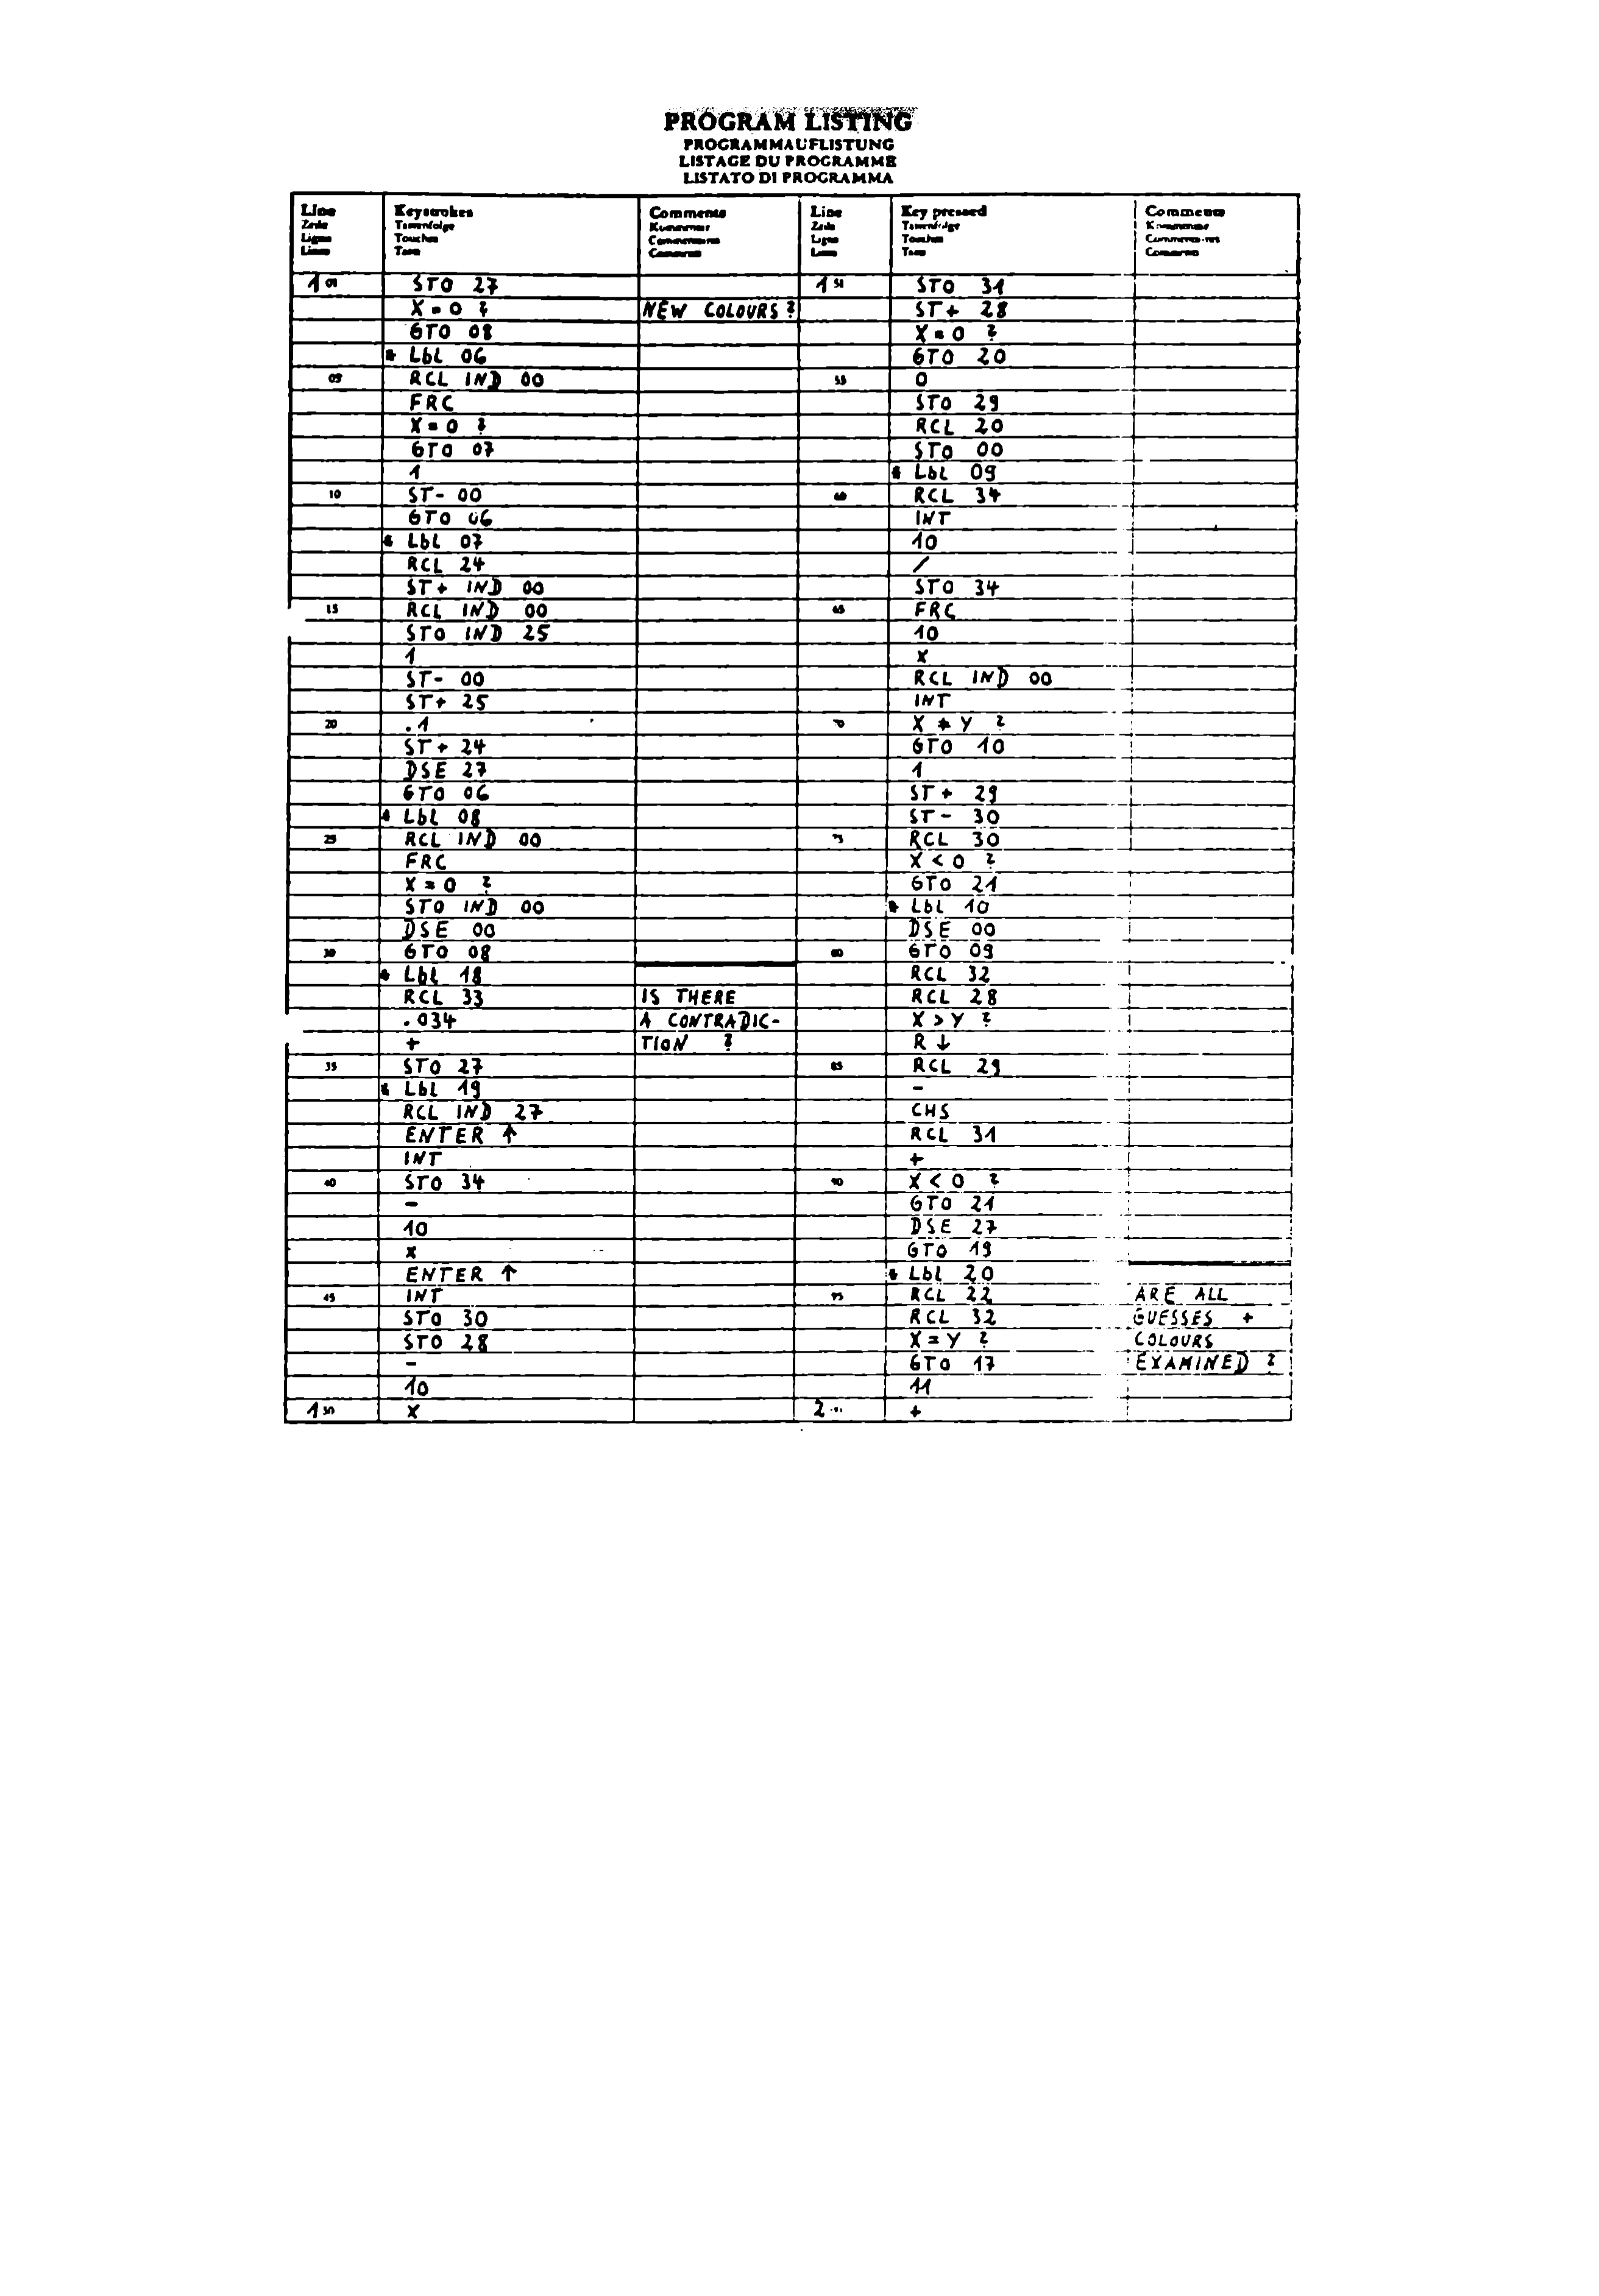 PROGRAM LISTING
PROGRAMMAUFLISTUNG
LISTAGE DU PROGRAMME
LISTATO DI PROGRAMMA
Line Keystrokes Comments Line Key pressed Comments
Zeile Tastenfolge Kommentar Zeile Tastenfolge Kommentar
Ligne Touches Commentaires Ligne Touches Commentaires
Linea Tasti Commenti Linea Tasti Commenti
1 01 STO 27 1 51 STO 31
X=0 ? NEW COLOURS ? ST+ 28
GTO 08 X=0 ?
* Lbl 06 GTO 20
05 RCL IND 00 55 0
FRC STO 29
X=0 ? RCL 20
GTO 07 STO 00
1 * Lbl 09
10 ST- 00 60 RCL 34
GTO 06 INT
* Lbl 07 10
RCL 24 /
ST+ IND 00 STO 34
15 RCL IND 00 65 FRC
STO IND 25 10
1 x
ST- 00 RCL IND 00
ST+ 25 INT
20 .1 70 X ≠ Y ?
ST+ 24 GTO 10
DSE 27 1
GTO 06 ST+ 29
* Lbl 08 ST- 30
25 RCL IND 00 75 RCL 30
FRC X<0 ?
X=0 ? GTO 21
STO IND 00 * Lbl 10
DSE 00 DSE 00
30 GTO 08 80 GTO 09
* Lbl 18 RCL 32
RCL 33 IS THERE RCL 28
.034 A CONTRADIC- X>Y ?
+ TION ? R ↓
35 STO 27 85 RCL 29
* Lbl 19 -
RCL IND 27 CHS
ENTER ↑ RCL 31
INT +
40 STO 34 90 X<0 ?
- GTO 21
10 DSE 27
x GTO 19
ENTER ↑ * Lbl 20
45 INT 95 RCL 22 ARE ALL
STO 30 RCL 32 GUESSES +
STO 28 X=Y ? COLOURS
- GTO 17 EXAMINED ?
10 11
1 50 x 2 +